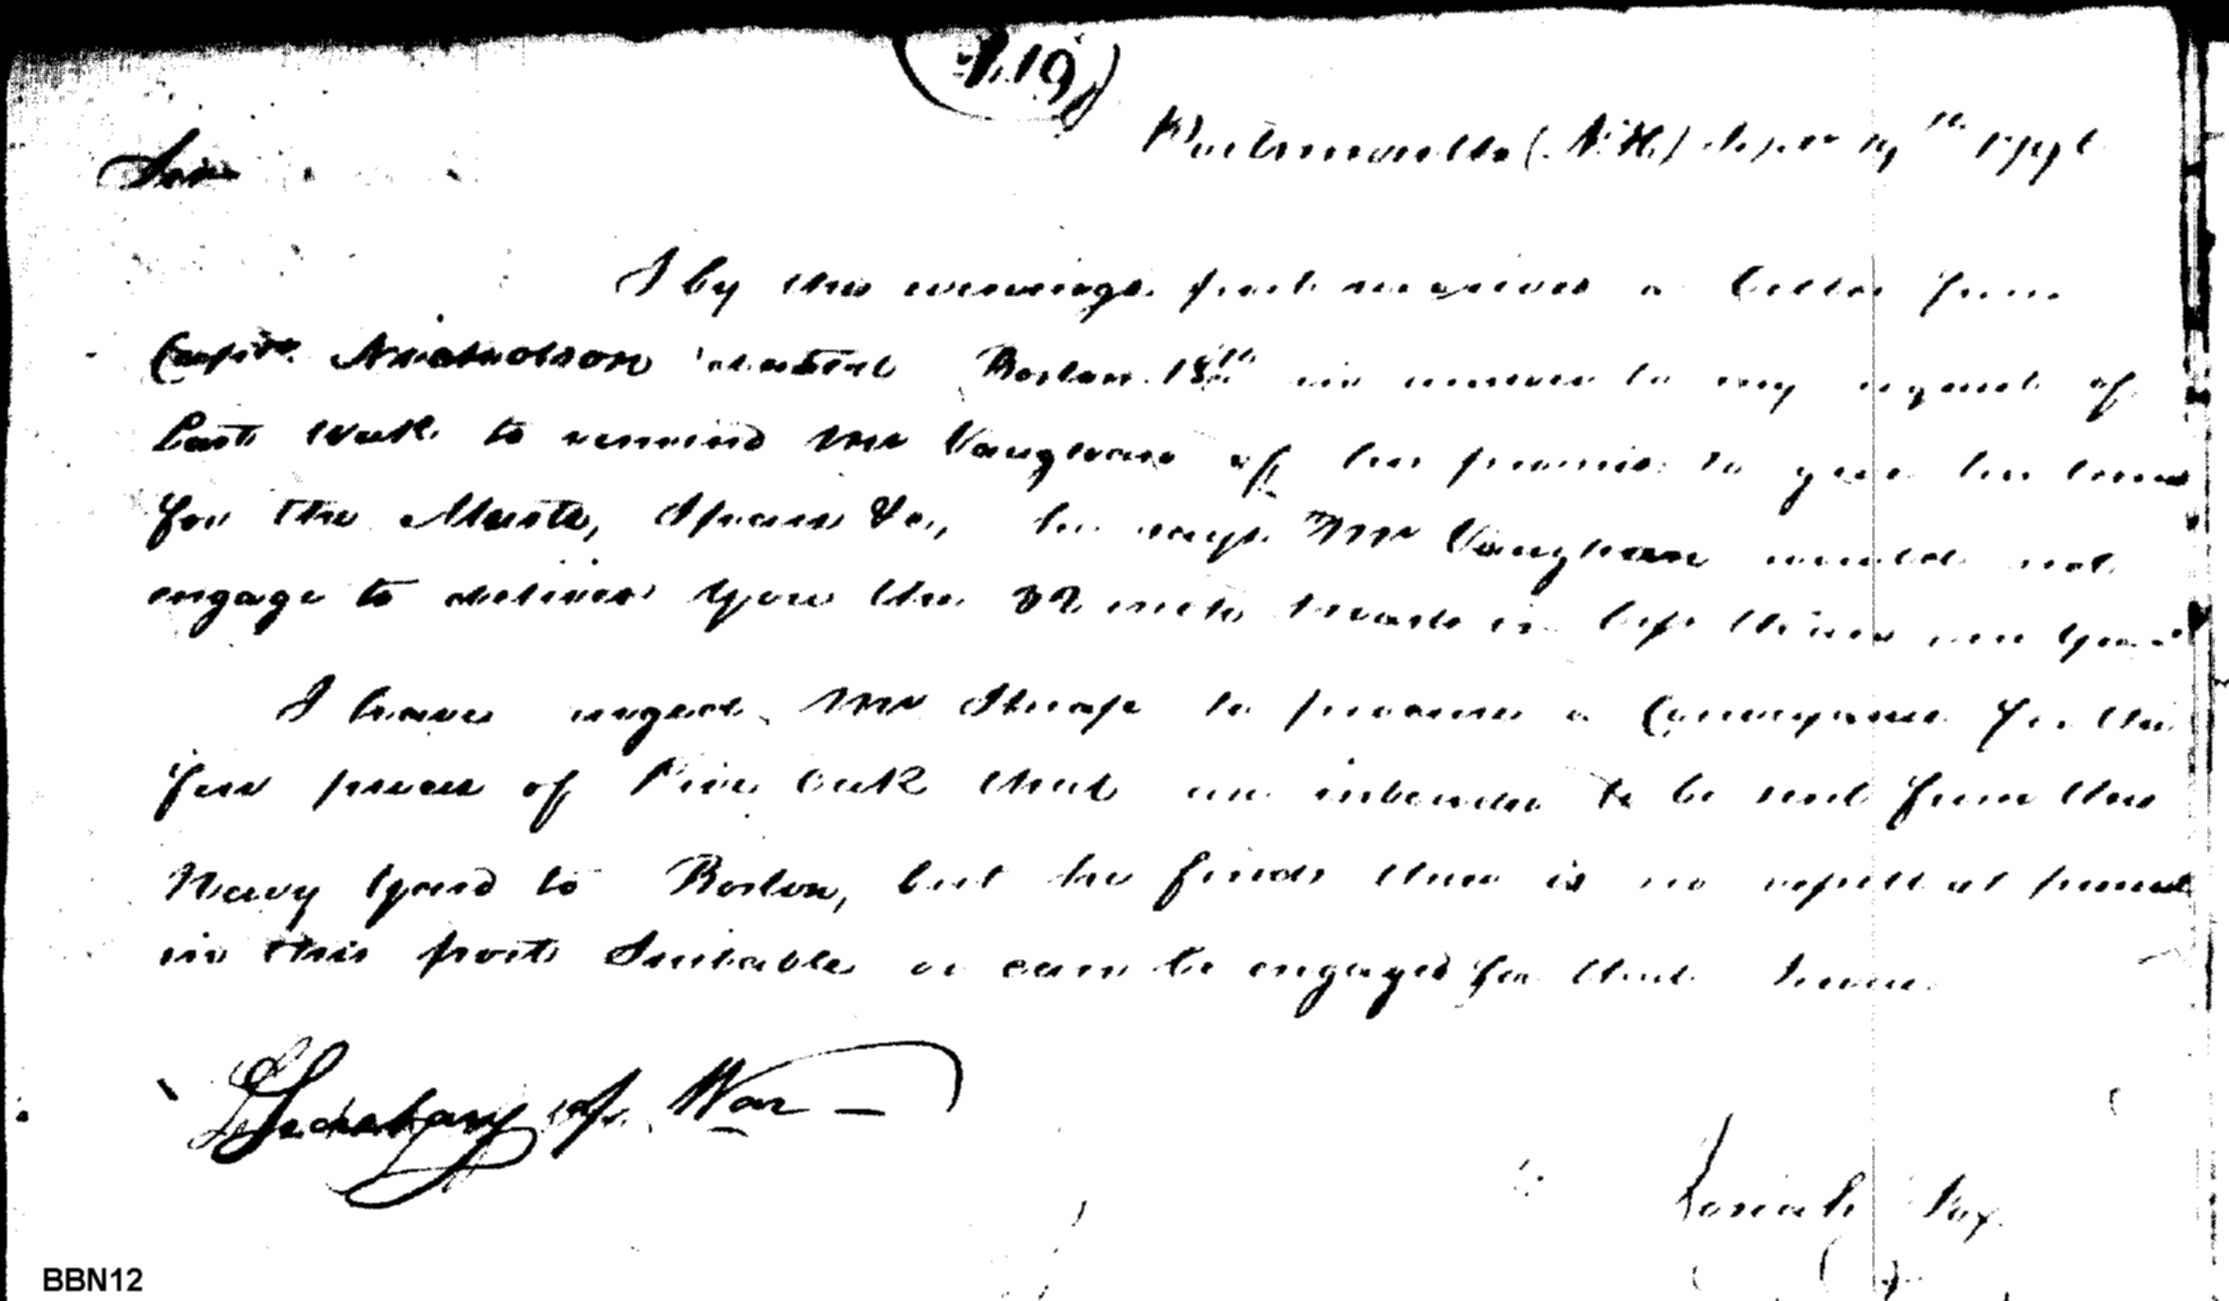 Sir
Portsmouth (N.H.) Sepr 19th 179
I by this evenings post received a letter from
Captn Nicholson dated Boston 18th in answer to my request of
Last Week to remind Mr Vaughan of his promise to give his terms
for the Masts, Spars &c, he says Mr Vaughan would not
engage to deliver you the 32 inch Masts in less than one year
I have urged Mr Sheafe to procure a Conveyance for the
few pieces of Live Oak that are intended to be sent from this
Navy Yard to Boston, but he finds there is no vessel at present
in this port Suitable or can be engaged for that
Secretary of War —
Josiah Fox
BBN12